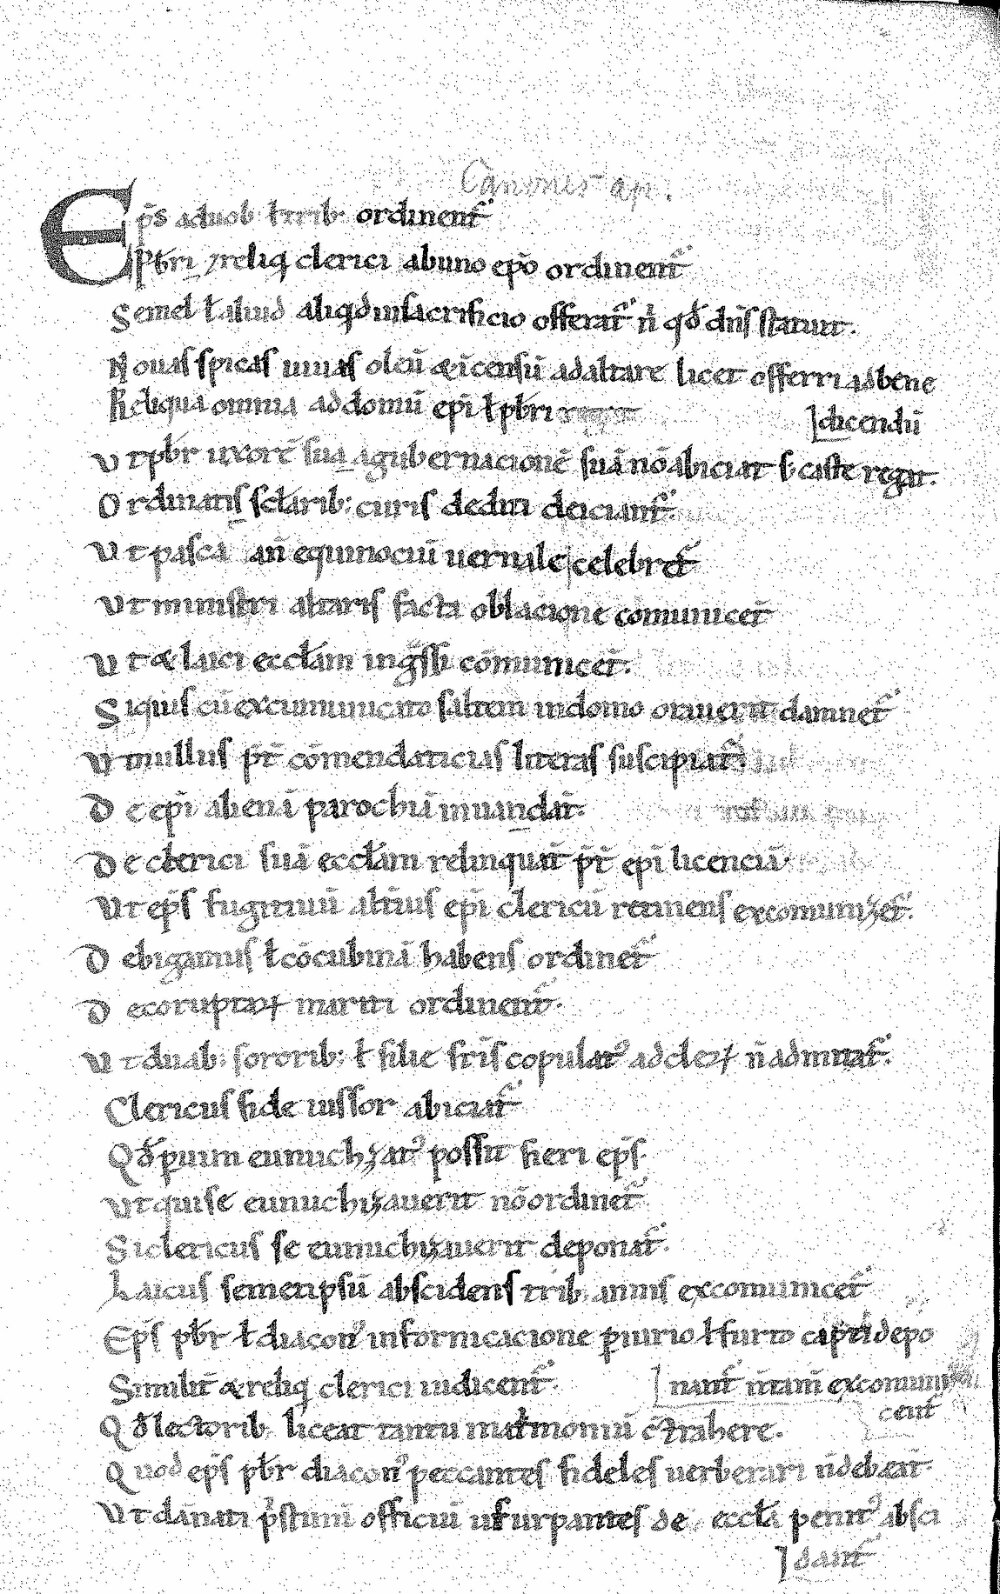 Canones ap.
Ep̄s a duob ł trib ordinent᷑
Pb̄ri ⁊ reliq clerici ab uno ep̄o ordinent᷑
Semel ł aliud aliqđ in sacrificio offerat᷑ n̄ qđ dn̄s statuit.
Nouas spicas uuas oleū & īcensū ad altare licet offerri ad bene
Reliqua omnia ad domū ep̄i ł pb̄ri
dicendū
Vt pb̄r uxorē suā a gubernacionē suā nō abiciat s; caste regat.
Ordinatis sc̄larib; curis dediti deiciant᷑.
Vt pasca an̄ equinocciū uernale celebret᷑
Vt ministri altaris facta oblacione comunicet̄
Vt & laici eccl̄am ingssi cōmunicet̄.
Siquis cū excumunicato saltem in domo orauerit damnet᷑
Vt nullus p̄t cōmendaticias literas suscipiat᷑.
De ep̄i alienā parochiā inuandat̄.
De clerici suā eccl̄am relinquat̄ p̄t ep̄i licenciā.
Vt ep̄s fugitiuū alt̄ius ep̄i clericū retinens excomunizet᷑.
De bigamus ł cōcubinā habens ordinet᷑
De coruptaꝝ mariti ordinent̄.
Vt duab; sororib; ł filie fr̄is copulat᷒ ad cleꝝ n̄ admitat᷑.
Clericus fide iussor abiciat᷑
Qđ p uim eunuchizat᷒ possit fieri ep̄s.
Vt qui se eunuchizauerit nō ordinet᷑
Si clericus se eunuchizauerit deponat᷑.
Laicus semetipsū abscidens trib; annis excomunicet᷑
Ep̄s pb̄r ł diacon᷒ in fornicacione piurio ł furto capti depo
Similit̄ & reliq clerici iudicent᷑.
nant᷑ n̄ tam̄ excomuni
cent᷑
Qđ lectorib; liceat tantu mat̄moniū c̄trahere.
Quod ep̄s pb̄r diacon᷒ peccantes fideles uerberari n̄ debeat̄.
Vt dānati p̄stinū officiū usurpantes de eccl̄a penit᷒ absci
dant᷑